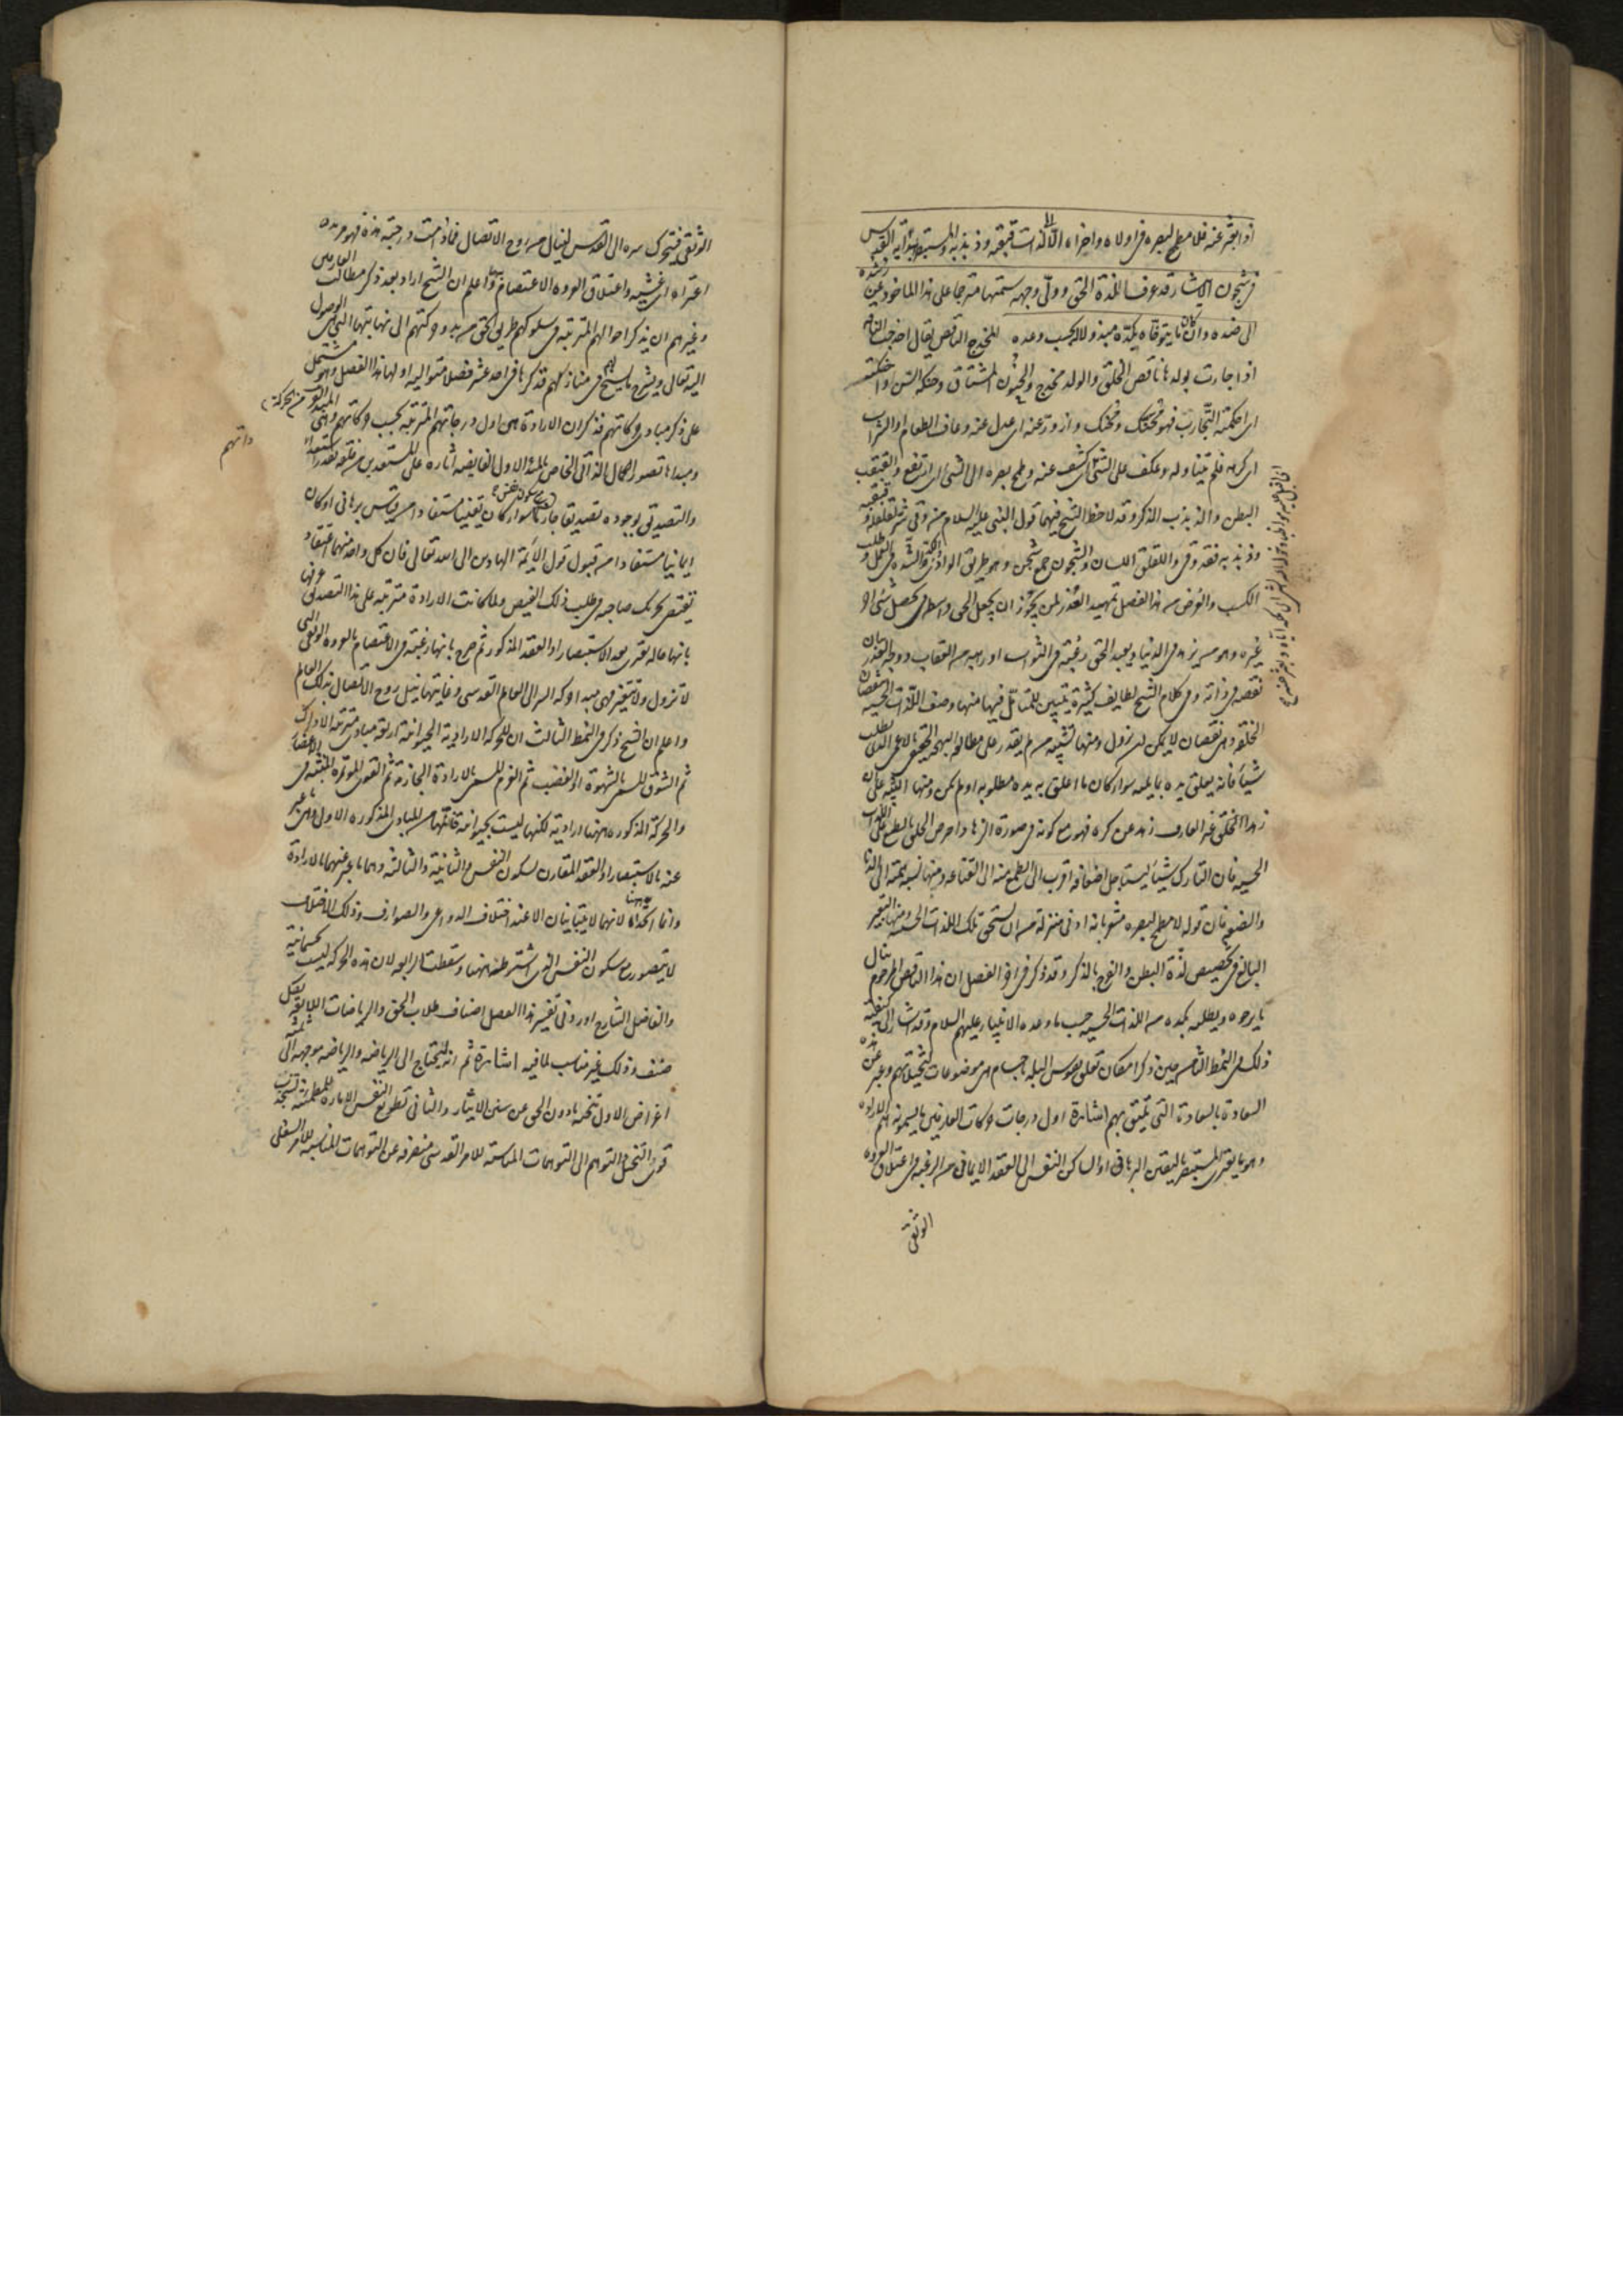 اذا بعثر عنه فلا مطمح لبصره فى اولاه واخراه الا الى لذات قبقبه وذبذبه والمستبصر بهداية القدس
فى شجون الايثار قد عرف اللذة الحق وولى وجهه سمتها مترحما على هذا الماخوذ عن رشده
الى ضده وان كان ما يتوخاه بكده مبذولا له بحسب وعده المخدج الناقص يقال اخدجت الناقة
اذا جاءت بولدها ناقص الخلق والولد مخدج والحنون المشتاق وحنكته السن واحنكته
اى احكمته التجارب فهو محنك ومحنك وازور عنه اى عدل عنه وعاف الطعام او الشراب
اى كرهه فلم يتناوله وعكف على الشئ وكشف عنه وطمح بصره الى الشئ اى ارتفع والقبقب
البطن والذبذب الذكر وقد لاحظ الشيخ فيهما قول النبى عليه السلام من وقى شر لقلقه وقبقبه
وذبذبه فقد وقى واللقلق اللسان والشجون جمع شجن وهو طريق الوادى والكد الشدة فى العمل وطلب
الكسب والغرض من هذا الفصل تمهيد العذر لمن يجوز ان يجعل الحق واسطة فى تحصيل شئ او
غيره وهو من يزهد فى الدنيا ويعبد الحق رغبة فى الثواب او رهبة من العقاب ووجه العذر بيان
نقصه فى ذاته وفى كلام الشيخ لطايف كثيرة يتبين للمتامل فيها منها وصف اللذات الحسية بنقصان
الخلقة وهى نقصان لا يمكن ان يزول ومنها تشبيه من لم يقدر على مطالعة البهجة الحقيقية بالاعمى الذى يطلب
شيئا فانه يعلق يده بما يليه سواء كان ما اعلق به يده مطلوبه او لم يكن ومنها التنبيه على ان
زهد الخلق غير العارف زهد عن كره فهو مع كونه فى صورة الزهاد احرص الخلق بالطبع على اللذات
الحسية فان التارك شيئا ليستاجل اضعافه اقرب الى الطمع منه الى القناعة ومنها نسبة همته الى الدناءة
والضعة فان قوله لا مطمح لبصره مشعر بانه ادنى منزلة من ان يستحق تلك اللذات الحسية ومنها التعيير
البالغ فى تخصيص لذة البطن والفرج بالذكر وقد ذكر فى اخر الفصل ان هذا الناقص المرحوم ينال
ما يرجوه ويطلبه بكده من اللذات الحسية حسب ما وعده الانبياء عليهم السلام وقد اشار الى كيفية
ذلك فى النمط الثامن حين ذكر امكان تعلق نفوس البله باجسام هى موضوعات لتخيلاتهم وعبر عن هذه
السعادة بالسعادة التى تليق بهم اشارة اول درجات حركات العارفين ما يسمونه هم الارادة
وهو ما يعترى المستبصر باليقين البرهانى او الساكن النفس الى العقد الايمانى من الرغبة فى اعتلاق العروة
الوثقى
الوثقى فيتحرك سره الى القدس لينال من روح الاتصال فما دامت درجته هذه فهو مريد
اعتراه اى غشيه واعتلاق العروة الاعتصام بها واعلم ان الشيخ اراد بعد ذكر مطالب العارفين
وغيرهم ان يذكر احوالهم المترتبة فى سلوكهم طريق الحق من بدو حركتهم الى نهايتها التى هى الوصول
اليه تعالى ويشرح ما يسنح لهم فى منازلهم فذكرها فى احد عشر فصلا متوالية اولها هذا الفصل وهو مشتمل
على ذكر مبادى حركاتهم فذكر ان الارادة هى اول درجاتهم المترتبة بحسب حركاتهم وهى المبدأ القريب من الحركة
ومبداها تصور الكمال الذاتى الخاص بالمبدأ الاول الفايضة اثاره على المستعدين من خلقه بقدر استعداداتهم
والتصديق بوجوده تصديقا جازما مع سكون نفس سواء كان يقينيا مستفادا من قياس برهانى او كان
ايمانيا مستفادا من قبول قول الائمة الهادين الى الله تعالى فان كل واحد منهما اعتقاد
يقتضى تحريك صاحبه فى طلب ذلك الفيض ولما كانت الارادة مترتبة على هذا التصديق عرفها
بانها حالة تعترى بعد الاستبصار او العقد المذكور ثم صرح بانها رغبة فى الاعتصام بالعروة الوثقى التى
لا تزول ولا تتغير فهى مبدأ حركة السر الى العالم القدسى وغايتها نيل روح الاتصال بذلك العالم
واعلم ان الشيخ ذكر فى النمط الثالث ان للحركة الارادية الحيوانية اربعة مبادى مترتبة الادراك
ثم الشوق المسمى بالشهوة او الغضب ثم العزم المسمى بالارادة الجازمة ثم القوى المؤتمرة المنبثة فى الاعضاء
والحركة المذكورة ههنا ارادية لكنها ليست بحيوانية فاثبتها من المبادى المذكورة الاول وهو ما عبر
عنه بالاستبصار او العقد المقارن لسكون النفس والثانية والثالثة وهما ما عبر عنهما بالارادة
وانما اتحدا ههنا لانهما لا يتباينان الا عند اختلاف الدواعى والصوارف وذلك الاختلاف
لا يتصور مع سكون النفس الذى اشترط ههنا وسقطت الرابعة لان هذه الحركة ليست بجسمانية
والفاضل الشارح اورد فى تفسير هذا الفصل اصناف طلاب الحق والرياضات اللايقة بكل
صنف وذلك غير مناسب لما فيه اشارة ثم انه ليحتاج الى الرياضة والرياضة موجهة الى ثلثة
اغراض الاول تنحية ما دون الحق عن سنن الايثار والثانى تطويع النفس الامارة للمطمئنة لتنجذب
قوى التخيل والتوهم الى التوهمات المناسبة للامر القدسى منصرفة عن التوهمات المناسبة للامر السفلى